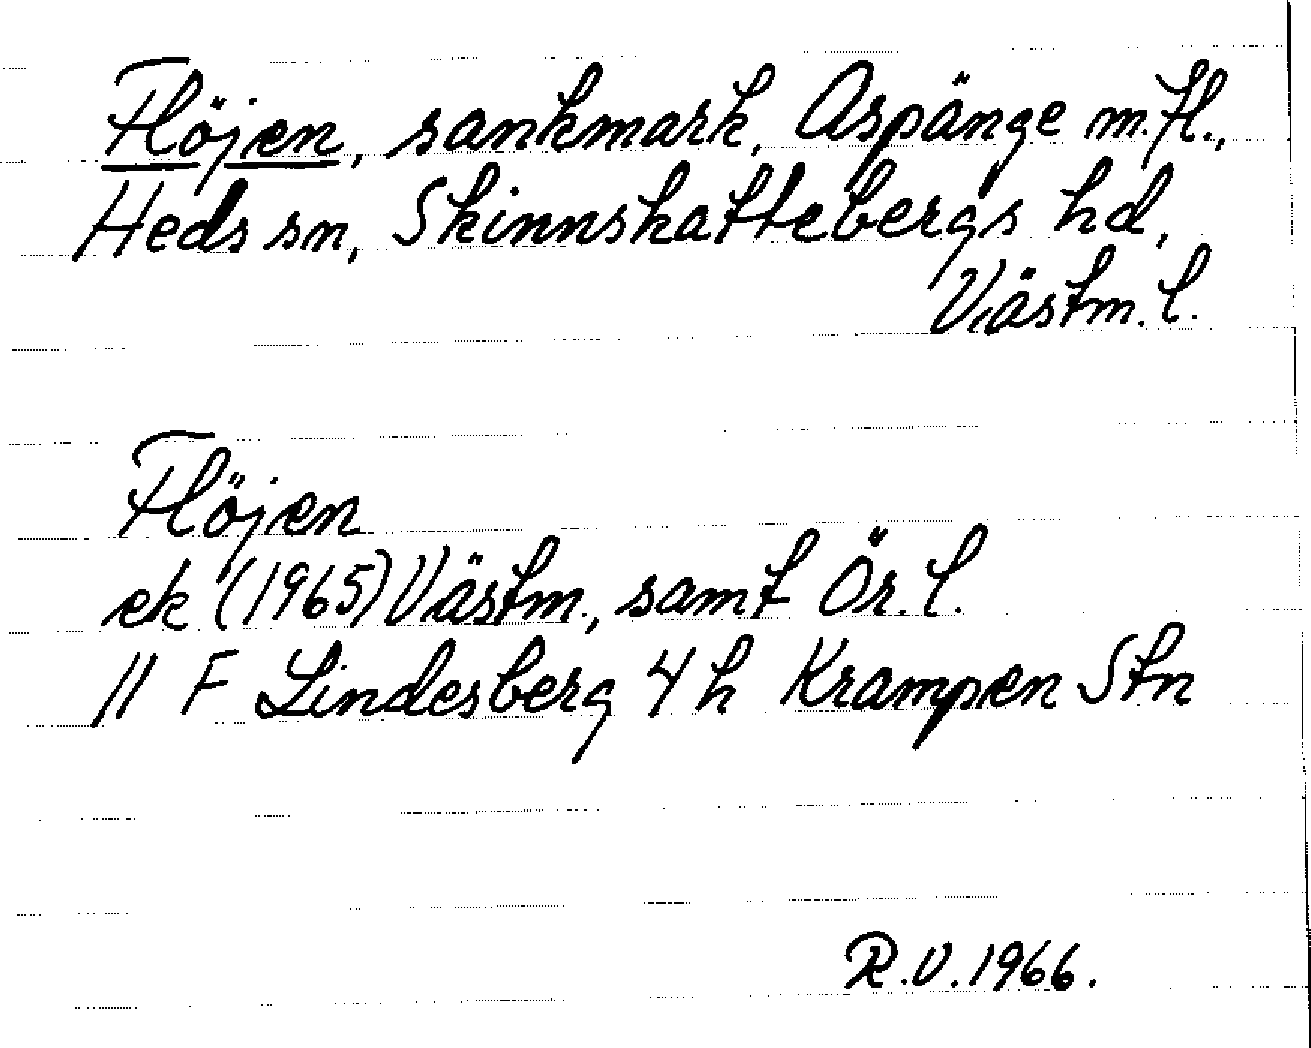 Flöjen, sankmark, Aspänge m.fl.,
Heds sn, Skinnskattebergs hd,
Västm. l.
Flöjen
ek (1965) Västm., samt Ör. l.
11 F Lindesberg 4 h Krampen Stn
R.V. 1966.